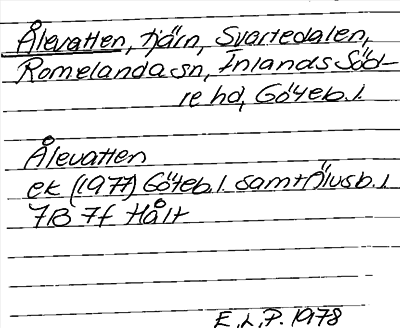 Ålevatten, tjärn, Svartedalen,
Romelanda sn, Inlands Söd-
re hd, Göteb. l.
Ålevatten
ek (1977) Göteb. l. samt Älvsb. l
7B 7f Hålt
E.L.P. 1978